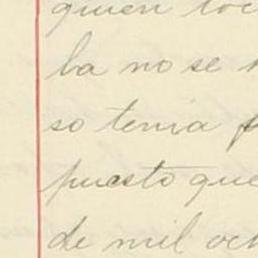 quien toc
ba no se
so tenia
puesto que
de mil och